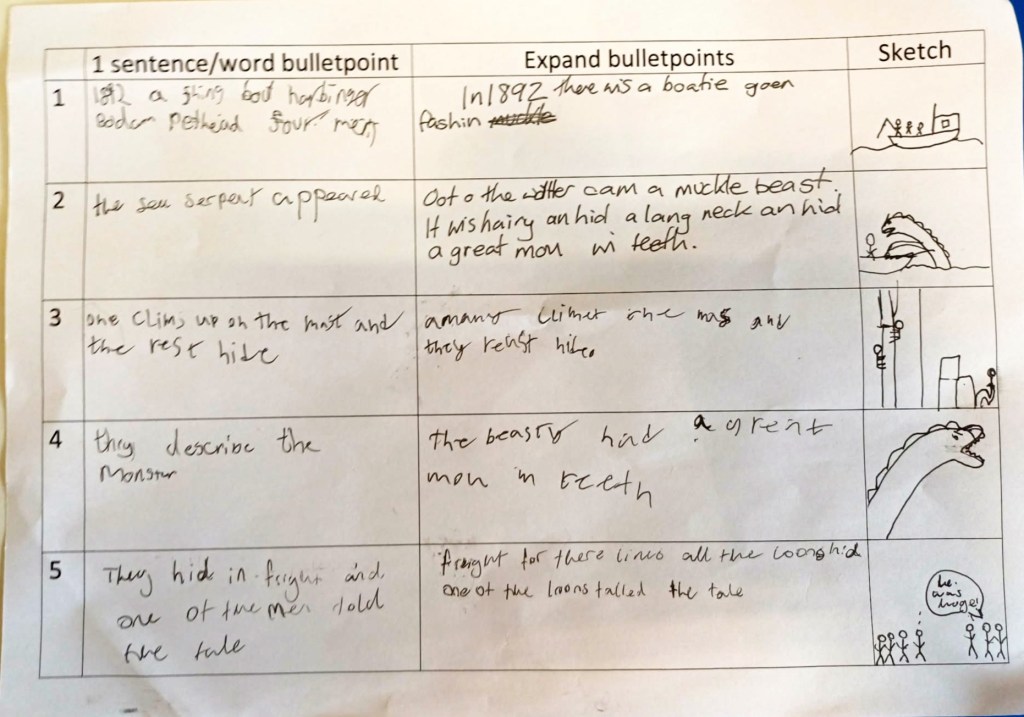 1 sentence/word bulletpoint
Expand bulletpoints
Sketch
1
1892 a fhing bout harbinger
Bodom Petheiad four men
In 1892 there wis a boatie goen
fashin muckle
2
the seu serpent appeared
Oot o the watter cam a muckle beast.
It wis hairy an hid a lang neck an hid
a great mou wi teeth.
3
one clims up on the mast and
the rest hide
amany climet the mas and
they reast hide.
4
they describe the
Monster
the beasty had a grent
mou in teeth
5
They hide in fright and
one of the men told
the tale
freight for there lives all the loons hid
one of the loons talled the tale
he
was
huge!